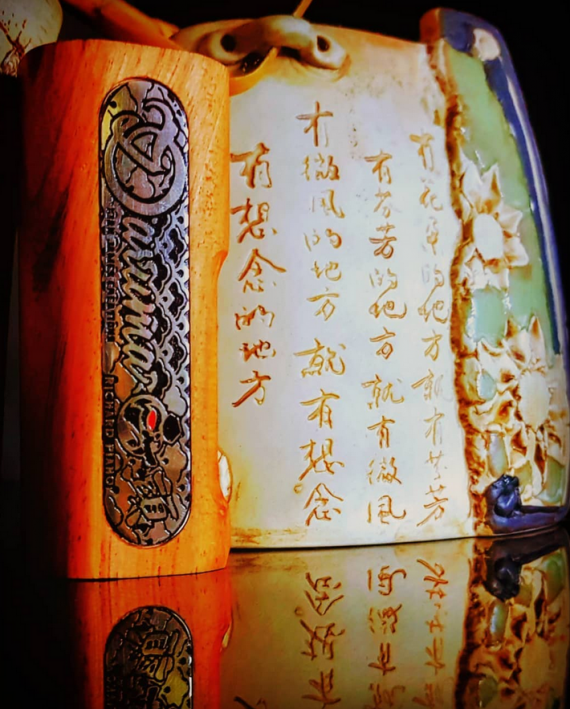 有花草的地方就有芬芳
有芬芳的地方就有微風
有微風的地方就有想念
有想念的地方
RICHARD PIANO
道